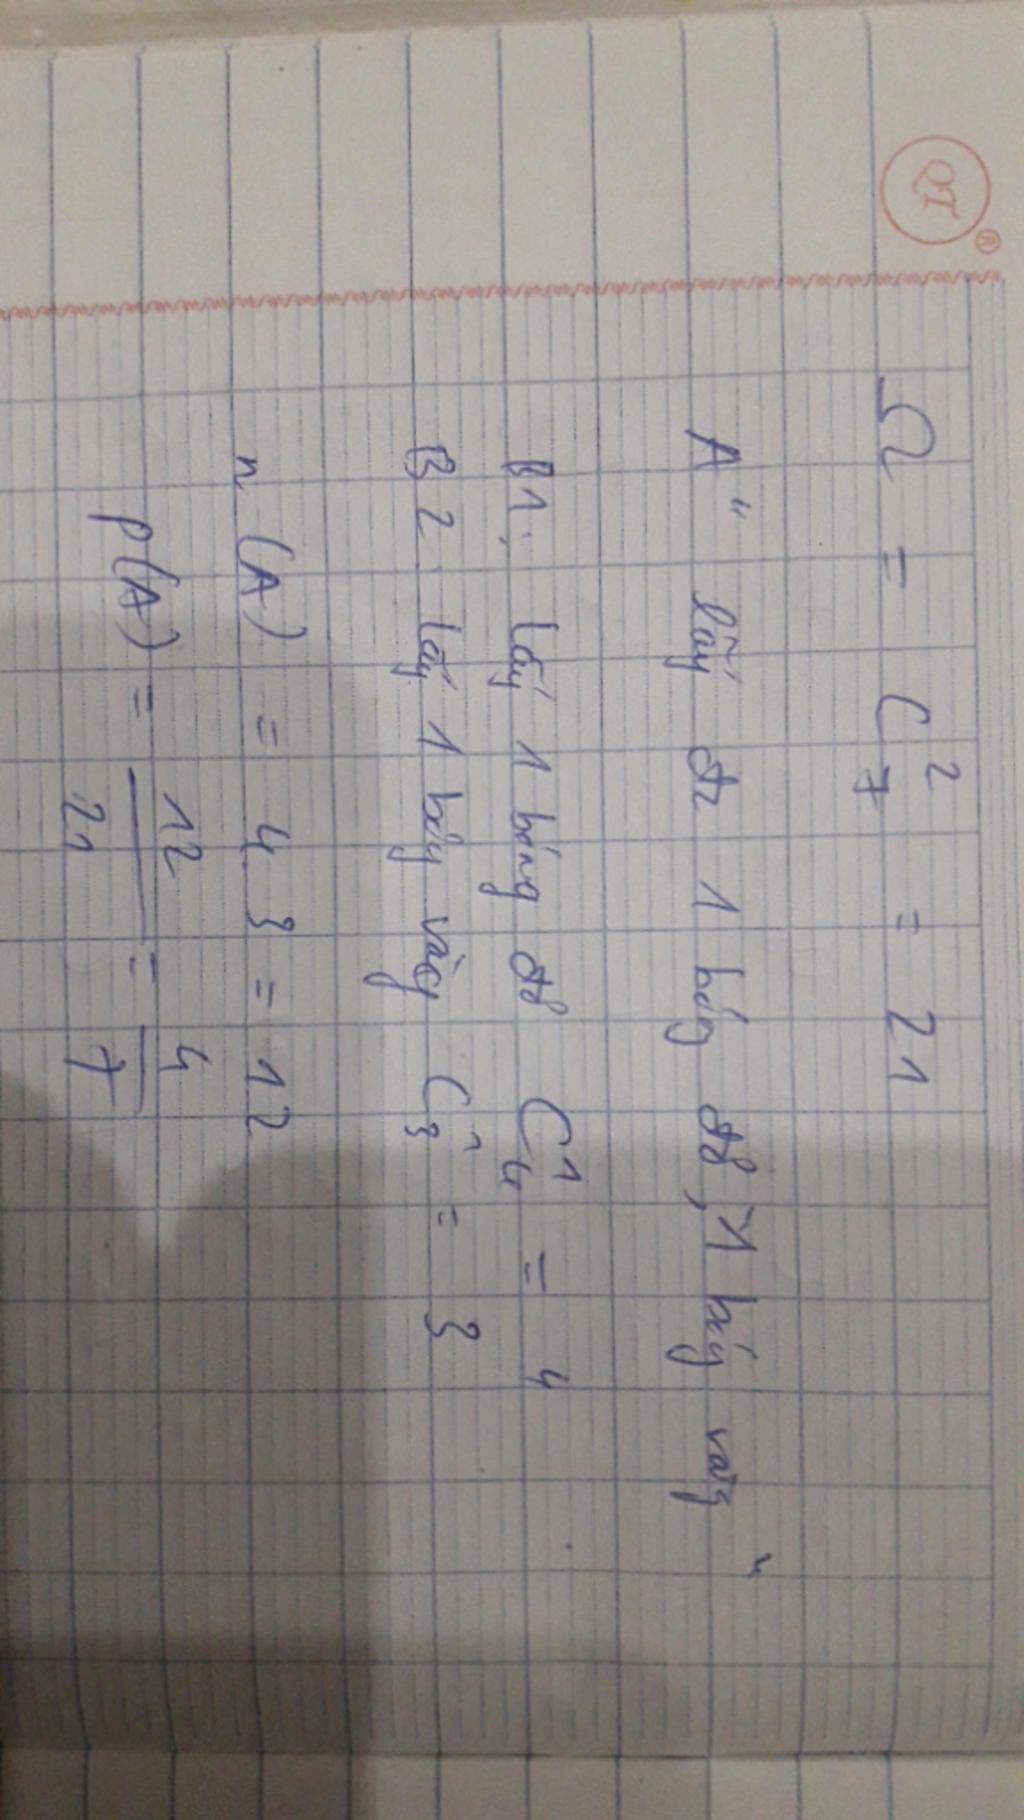 QT ®
Ω = C²₇ = 21
A " lấy đc 1 bóng đỏ, 1 bóng vàng "
B1: lấy 1 bóng đỏ C¹₄ = 4
B2: lấy 1 bóng vàng C¹₃ = 3
n (A) = 4.3 = 12
P(A) = 12/21 = 4/7